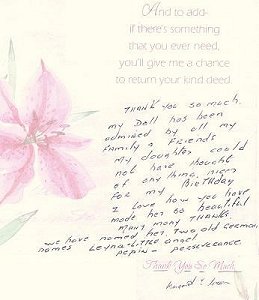 And to add-
if there's something
that you ever need,
you'll give me a chance
to return your kind deed.
Thank you so much.
my Doll has been
admired by all my
Family & Friends
my daughter could
not have thought
of any thing nicer
for my BIRTHDAY
I Love how you have
made her so beautiful
many many THANKS.
we have named her, Two old German
names Leyna-Little angel
Pepin - Perseverance.
Thank You So Much